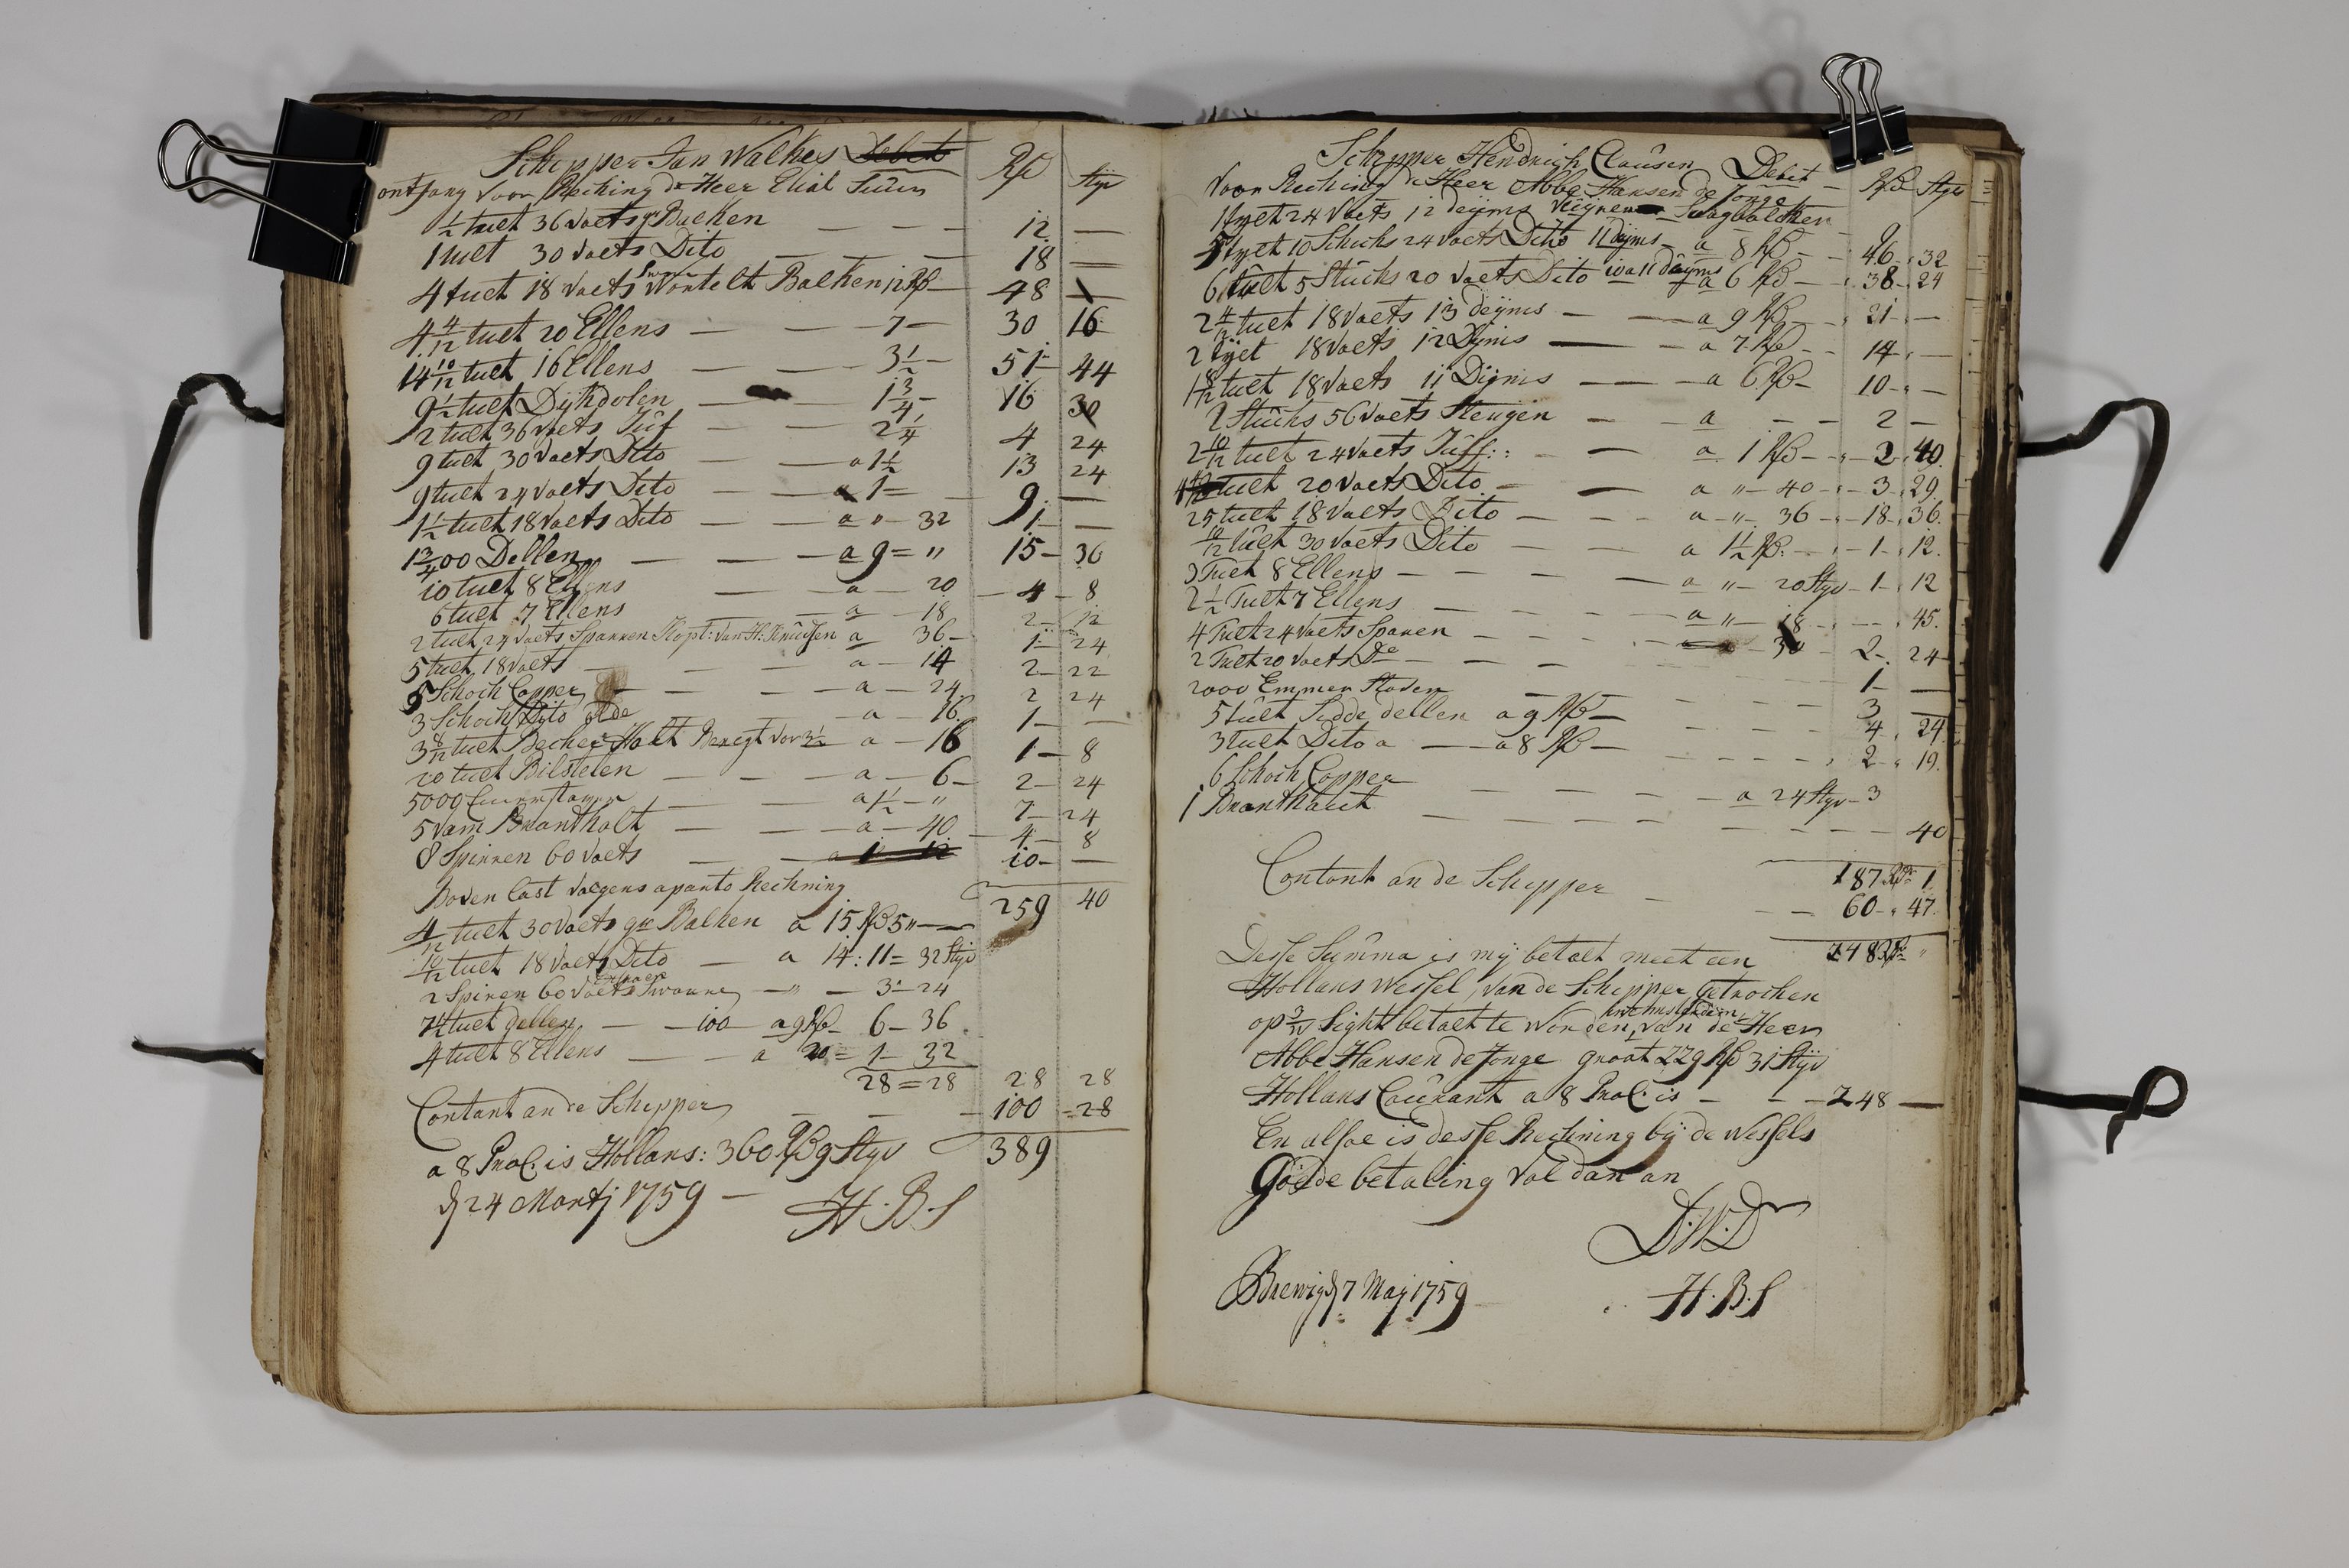 Schipper Jan Walkes Debet
Rß Styv
ontfang voor Reching de Heer Elial
1/2 tuelt 36 Voets gr Balken — — — 12 —
1 tuelt 30 Voets Dito — — — 18 —
4 tuelt 18 Voets Wortelt Balken 12 Rß — 48
4 4/12 tuelt 20 Ellens — — 7 — 30 16
14 10/12 tuelt 16 Ellens — — 3 1/2 — 51 44
9 1/2 tuelt Dijkdolen — 1 3/4 — 16 30
2 tuelt 36 Voets Juf — — 2 1/4 4 24
9 tuelt 30 Voets Dito — — a 1 1/2 13 24
9 tuelt 24 Voets Dito — — a 1 = — 9 —
1 1/2 tuelt 18 Voets Dito — — a " — 32 1 —
1 3/4 00 Dellen — — a 9 = " 15 — 36
10 tuelt 8 Ellens — a — 20 — 4 — 8
6 tuelt 7 Ellens — a — 18 2 — 12
2 tuelt 24 Voets Sparren Kopt: Van H: Knudsen a 36 — 1 — 24
5 tuelt 18 Voets — — — a — 14 2 — 22
5 Schock Copper — — — a — 24 2 24
3 Schock Dito olde — a — 16 1 — —
3 8/12 tuelt Becker Holt vor 3 1/2 a — 16 1 — 8
20 tuelt Bilstelen — — — a — 6 — 2 — 24
5000 — — a 1 1/2 — " 7 — 24
5 Vam Brantholt — — — a — 40 — 4 — 8
8 Spirren 60 Voets — — a 1 12 10 — —
Boven last volgens aparito Rechning 259 40
4/12 tuelt 30 Voets gr Balken a 15 Rß 5 " —
10/12 tuelt 18 Voets Dito — a 14 : 11 = 32 Styv
2 Spiren 60 Voets — " — 3 — 24
tuelt dellen — — 100 a 9 Rß 6 — 36
4 tuelt 8 Ellens — — a 20 = 1 — 32
28 = 28 28 28
Contant an de Schipper — — — 100 = 28
a 8 ProC. is Hollans: 360 Rß 9 Styv 389
d 24 Martj 1759 — H. B. S
Schipper Hendrich Claüsen Debet — Rß Styv
Voor Rechinng de Heer Abbe Hansen de Jonge
1 tyelt 24 Voets 12 deyms Saagbalcken
5 tyelt 10 Stücks 24 Voets Dito 11 dyms — a 8 Rß — 46 . 32
6 tuelt 5 Stücks 20 Voets Dito 10 a 11 dayms a 6 Rß — 38 . 24
2 4/12 tuelt 18 Voets 13 deyms — — a 9 Rß — 21 . —
2 tyet 18 Voets 12 Dyms — — a 7 Rß — 14 . —
1 8/12 tuelt 18 Voets 11 Dijms — — a 6 Rß — 10 . —
2 Stücks 56 Voets Stengen — a — — 2 —
2 10/12 tuelt 24 Voets Juff: : — — a 1 Rß — 2 . 40
tuelt 20 Voets Dito — — a " — 40 — 3 . 29
25 tuelt 18 Voets Dito — — — a — " 36 — 18 . 36
10/12 tuelt 30 Voets Dito — — a 1 1/2 Rß. — 1 . 12
3 Tuelt 8 Ellens — — — — a " — 20 Styv — 1 . 12
2 1/2 Tuelt 7 Ellens — — — a " — 18 . — 45
4 Tuelt 24 Voets Sparen — — — 2 . 24
2 Tuelt 20 Voets De — — — 1 —
2000 Emmer Staven — — — 3 —
5 tuelt dellen a 9 Rß — — — 4 . 24
3 tuelt Dito a — a 8 Rß — — — 2 . 19
6 Schock Copper — — — a 24 Styv — 3
1 Branthault — — — 40
187 Rß 1
Contant an de Schipper — — — 60 . 47
248 Rß "
Desse Summa is mij betalt meet een
Hollans Wessel, Van de Schipper Getrocken
op Sight betalt te Worden, Van de Heer
Abbe Hansen de Jonge groot 229 Rß 31 Styv
Hollans Coürant a 8 ProC. is — — — 248 —
En alsoe is desse Rechning bij de Wessels
Goede betaling Vol dan an
D. W. D
Brewig d 7 Maj 1759 H. B. S